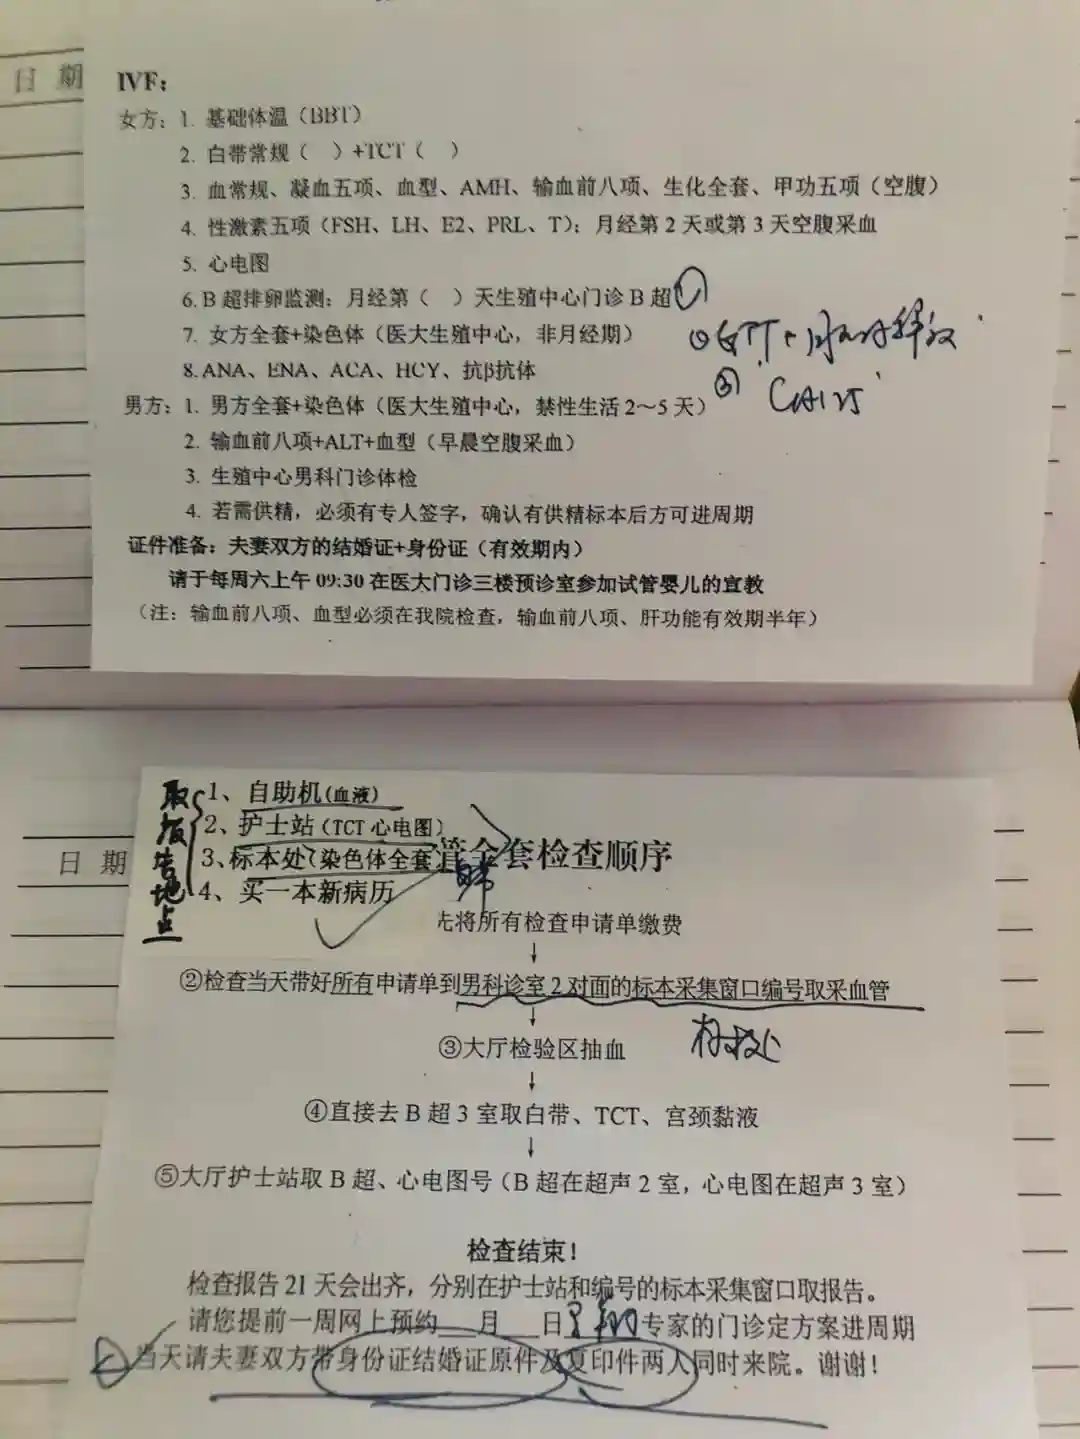 日 期
IVF：
女方：1. 基础体温（BBT）
2. 白带常规（ ）+TCT（ ）
3. 血常规、凝血五项、血型、AMH、输血前八项、生化全套、甲功五项（空腹）
4. 性激素五项（FSH、LH、E2、PRL、T）；月经第 2 天或第 3 天空腹采血
5. 心电图
6. B 超排卵监测：月经第（ ）天生殖中心门诊 B 超
7. 女方全套+染色体（医大生殖中心，非月经期）
8. ANA、ENA、ACA、HCY、抗β抗体
③ CA125
男方：1. 男方全套+染色体（医大生殖中心，禁性生活 2～5 天）
2. 输血前八项+ALT+血型（早晨空腹采血）
3. 生殖中心男科门诊体检
4. 若需供精，必须有专人签字，确认有供精标本后方可进周期
证件准备：夫妻双方的结婚证+身份证（有效期内）
请于每周六上午 09:30 在医大门诊三楼预诊室参加试管婴儿的宣教
（注：输血前八项、血型必须在我院检查，输血前八项、肝功能有效期半年）
日 期
取报告地点
1、自助机(血液)
2、护士站(TCT 心电图)
3、标本处(染色体全套)
4、买一本新病历
管全套检查顺序
先将所有检查申请单缴费
↓
②检查当天带好所有申请单到男科诊室 2 对面的标本采集窗口编号取采血管
↓
③大厅检验区抽血
↓
④直接去 B 超 3 室取白带、TCT、宫颈黏液
↓
⑤大厅护士站取 B 超、心电图号（B 超在超声 2 室，心电图在超声 3 室）
检查结束！
检查报告 21 天会出齐，分别在护士站和编号的标本采集窗口取报告。
请您提前一周网上预约 月 日 专家的门诊定方案进周期
当天请夫妻双方带身份证结婚证原件及复印件两人同时来院。谢谢！